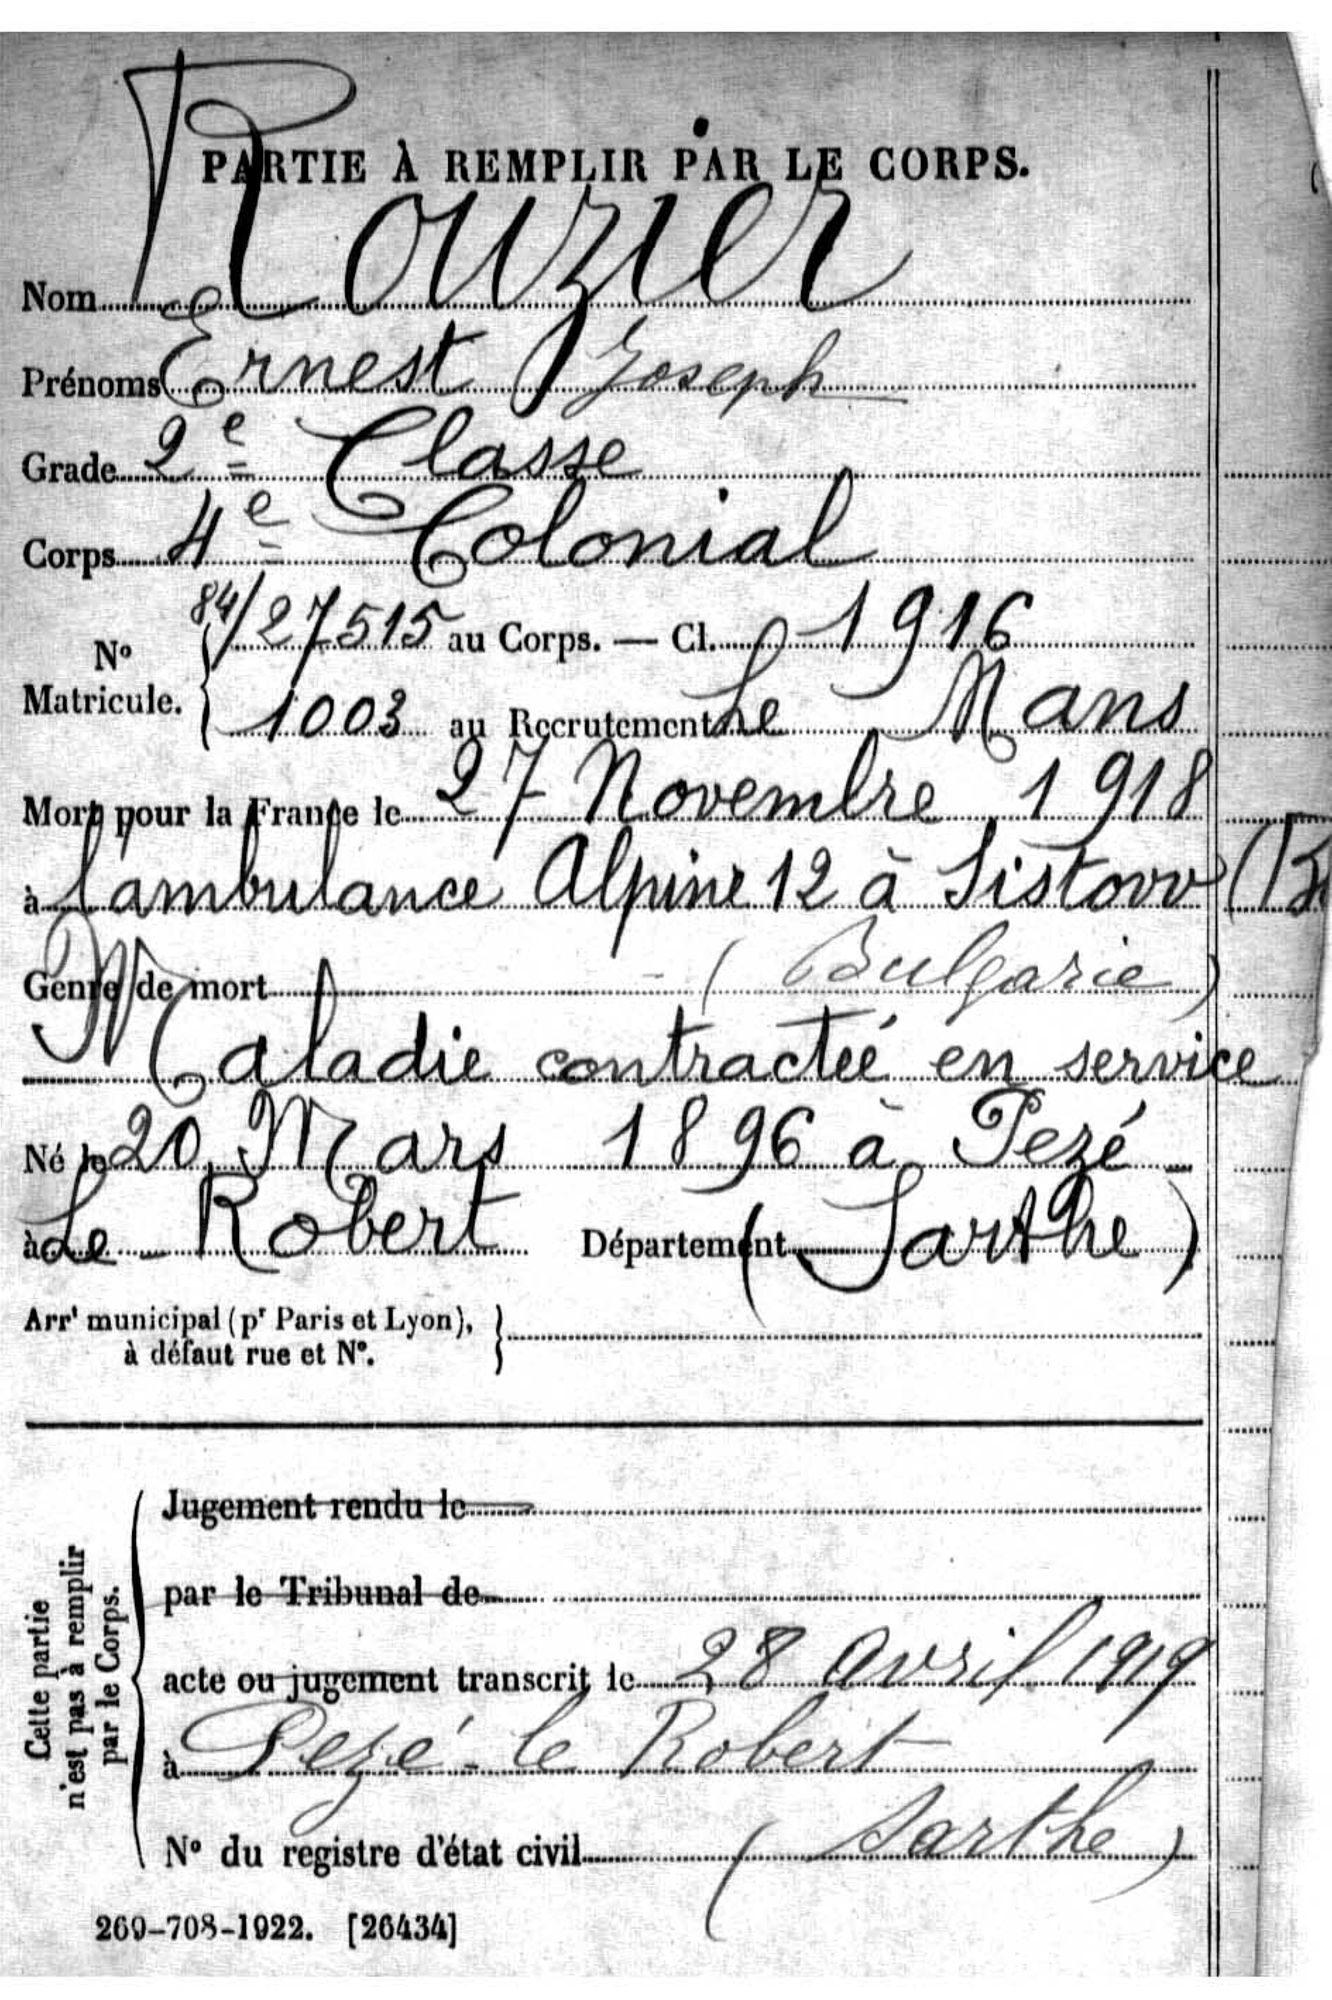 PARTIE À REMPLIR PAR LE CORPS.
Nom Rouzier
Prénoms Ernest Joseph
Grade 2e Classe
Corps 4e Colonial
No Matricule. { 84/27515 au Corps. — Cl. 1916
1003 au Recrutement Le Mans
Mort pour la France le 27 Novembre 1918
à l'ambulance Alpine 12 à Sistovv (B
Genre de mort (Bulgarie)
Maladie contracteé en service
Né le 20 Mars 1896 à Pezé
à Le Robert Département (Sarthe)
Arrt municipal (pr Paris et Lyon),
à défaut rue et No. }
Cette partie
n'est pas à remplir
par le Corps.
Jugement rendu le
par le Tribunal de
acte ou jugement transcrit le 28 Avril 1919
à Pezé-le Robert
No du registre d'état civil (Sarthe)
269-708-1922. [26434]